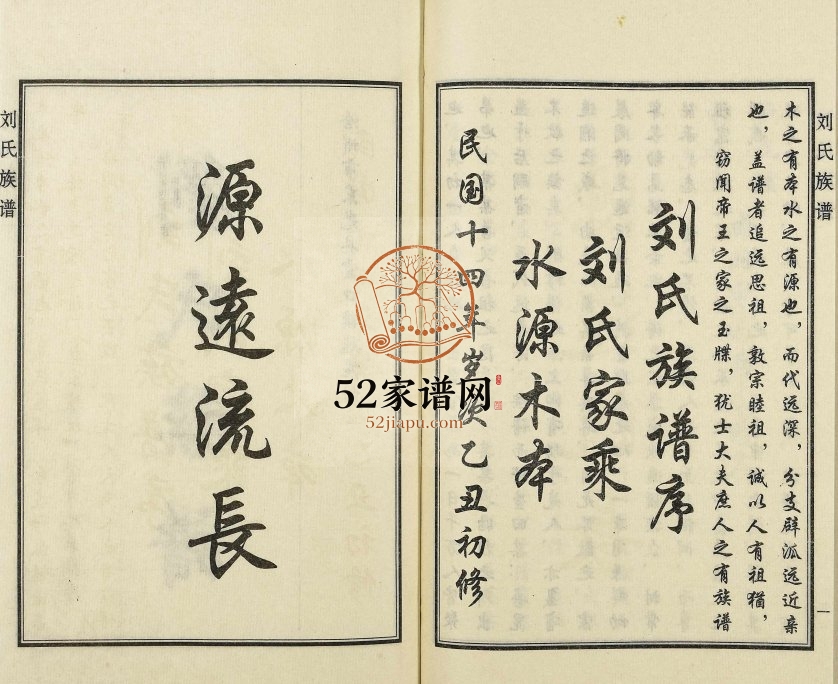 刘氏族谱
源遠流長
民国十四年岁次乙丑初修
水源木本
刘氏家乘
刘氏族谱序
窃闻帝王之家之玉牒，犹士大夫庶人之有族谱
也，盖谱者追远思祖，敦宗睦祖，诚以人有祖犹，
木之有本水之有源也，而代远深，分支辟泒远近亲
刘氏族谱
一
52家谱网
52jiapu.com